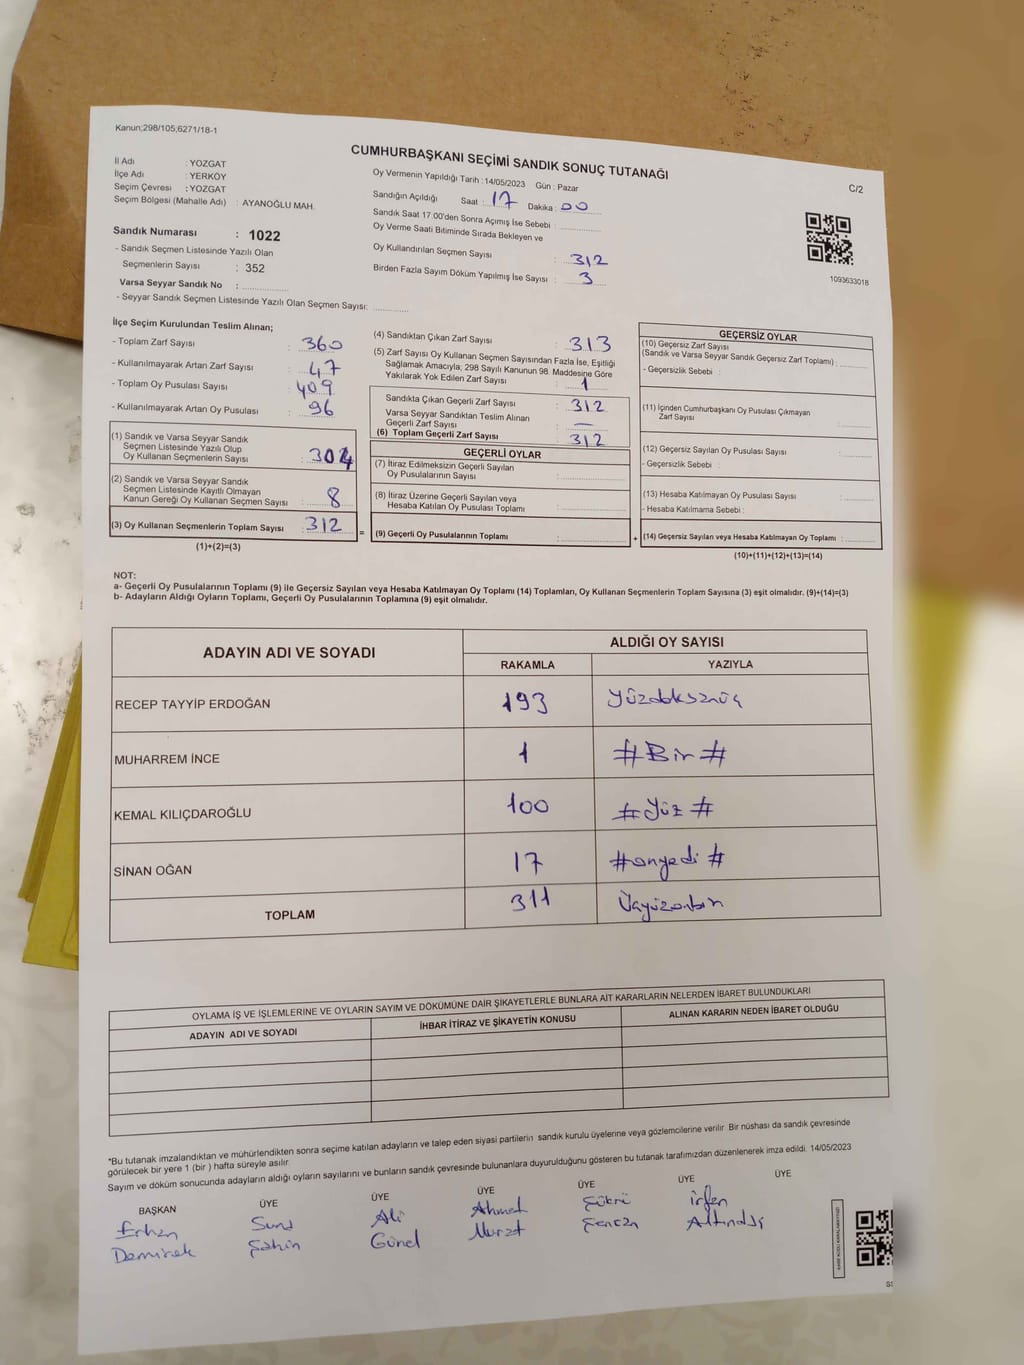 Kanun;298/105,6271/18-1
CUMHURBAŞKANI SEÇİMİ SANDIK SONUÇ TUTANAĞI
C/2
İl Adı : YOZGAT
İlçe Adı : YERKÖY
Seçim Çevresi : YOZGAT
Seçim Bölgesi (Mahalle Adı) : AYANOĞLU MAH.
Sandık Numarası : 1022
- Sandık Seçmen Listesinde Yazılı Olan
Seçmenlerin Sayısı : 352
Varsa Seyyar Sandık No :
- Seyyar Sandık Seçmen Listesinde Yazılı Olan Seçmen Sayısı:
Oy Vermenin Yapıldığı Tarih : 14/05/2023 Gün : Pazar
Sandığın Açıldığı Saat : 17 Dakika : 00
Sandık Saat 17:00'den Sonra Açımış İse Sebebi :
Oy Verme Saati Bitiminde Sırada Bekleyen ve
Oy Kullandırılan Seçmen Sayısı : 312
Birden Fazla Sayım Döküm Yapılmış İse Sayısı : 3
1093633018
İlçe Seçim Kurulundan Teslim Alınan;
- Toplam Zarf Sayısı : 360
- Kullanılmayarak Artan Zarf Sayısı : 47
- Toplam Oy Pusulası Sayısı : 409
- Kullanılmayarak Artan Oy Pusulası : 96
(1) Sandık ve Varsa Seyyar Sandık
Seçmen Listesinde Yazılı Olup
Oy Kullanan Seçmenlerin Sayısı : 304
(2) Sandık ve Varsa Seyyar Sandık
Seçmen Listesinde Kayıtlı Olmayan
Kanun Gereği Oy Kullanan Seçmen Sayısı : 8
(3) Oy Kullanan Seçmenlerin Toplam Sayısı : 312
(1)+(2)=(3)
(4) Sandıktan Çıkan Zarf Sayısı : 313
(5) Zarf Sayısı Oy Kullanan Seçmen Sayısından Fazla İse, Eşitliği
Sağlamak Amacıyla; 298 Sayılı Kanunun 98. Maddesine Göre
Yakılarak Yok Edilen Zarf Sayısı : 1
Sandıkta Çıkan Geçerli Zarf Sayısı : 312
Varsa Seyyar Sandıktan Teslim Alınan
Geçerli Zarf Sayısı : —
(6) Toplam Geçerli Zarf Sayısı : 312
=
GEÇERLİ OYLAR
(7) İtiraz Edilmeksizin Geçerli Sayılan
Oy Pusulalarının Sayısı :
(8) İtiraz Üzerine Geçerli Sayılan veya
Hesaba Katılan Oy Pusulası Toplamı :
(9) Geçerli Oy Pusulalarının Toplamı :
+
GEÇERSİZ OYLAR
(10) Geçersiz Zarf Sayısı
(Sandık ve Varsa Seyyar Sandık Geçersiz Zarf Toplamı) :
- Geçersizlik Sebebi :
(11) İçinden Cumhurbaşkanı Oy Pusulası Çıkmayan
Zarf Sayısı :
(12) Geçersiz Sayılan Oy Pusulası Sayısı :
- Geçersizlik Sebebi :
(13) Hesaba Katılmayan Oy Pusulası Sayısı :
- Hesaba Katılmama Sebebi :
(14) Geçersiz Sayılan veya Hesaba Katılmayan Oy Toplamı :
(10)+(11)+(12)+(13)=(14)
NOT:
a- Geçerli Oy Pusulalarının Toplamı (9) ile Geçersiz Sayılan veya Hesaba Katılmayan Oy Toplamı (14) Toplamları, Oy Kullanan Seçmenlerin Toplam Sayısına (3) eşit olmalıdır. (9)+(14)=(3)
b- Adayların Aldığı Oyların Toplamı, Geçerli Oy Pusulalarının Toplamına (9) eşit olmalıdır.
ADAYIN ADI VE SOYADI ALDIĞI OY SAYISI
RAKAMLA YAZIYLA
RECEP TAYYİP ERDOĞAN 193
MUHARREM İNCE 1 #Bir#
KEMAL KILIÇDAROĞLU 100 #Yüz#
SİNAN OĞAN 17 #onyedi#
TOPLAM 311 Üçyüzonbir
OYLAMA İŞ VE İŞLEMLERİNE VE OYLARIN SAYIM VE DÖKÜMÜNE DAİR ŞİKAYETLERLE BUNLARA AİT KARARLARIN NELERDEN İBARET BULUNDUKLARI
ADAYIN ADI VE SOYADI İHBAR İTİRAZ VE ŞİKAYETİN KONUSU ALINAN KARARIN NEDEN İBARET OLDUĞU
*Bu tutanak imzalandıktan ve mühürlendikten sonra seçime katılan adayların ve talep eden siyasi partilerin sandık kurulu üyelerine veya gözlemcilerine verilir Bir nüshası da sandık çevresinde
görülecek bir yere 1 (bir ) hafta süreyle asılır
Sayım ve döküm sonucunda adayların aldığı oyların sayılarını ve bunların sandık çevresinde bulunanlara duyurulduğunu gösteren bu tutanak tarafımızdan düzenlenerek imza edildi. 14/05/2023
BAŞKAN ÜYE ÜYE ÜYE ÜYE ÜYE ÜYE
Erhan Ali Ahmet Şükrü İrfan
Demirek Şahin Günel Murat Sencan Altındaş